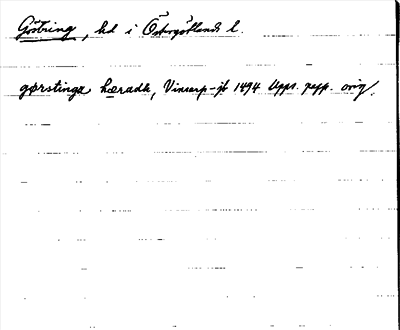 Göstring, hd i Östergötlands l.
gørstinga hæradh, Vinarp-jb 1494 Upps. papp. orig.